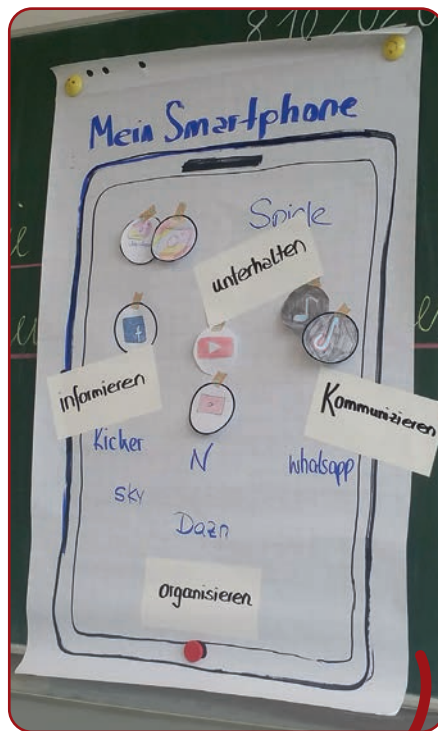 8.10.2020
Mein Smartphone
Spiele
unterhalten
informieren
Kommunizieren
Kicker
N
whatsapp
sky
Dazn
organisieren